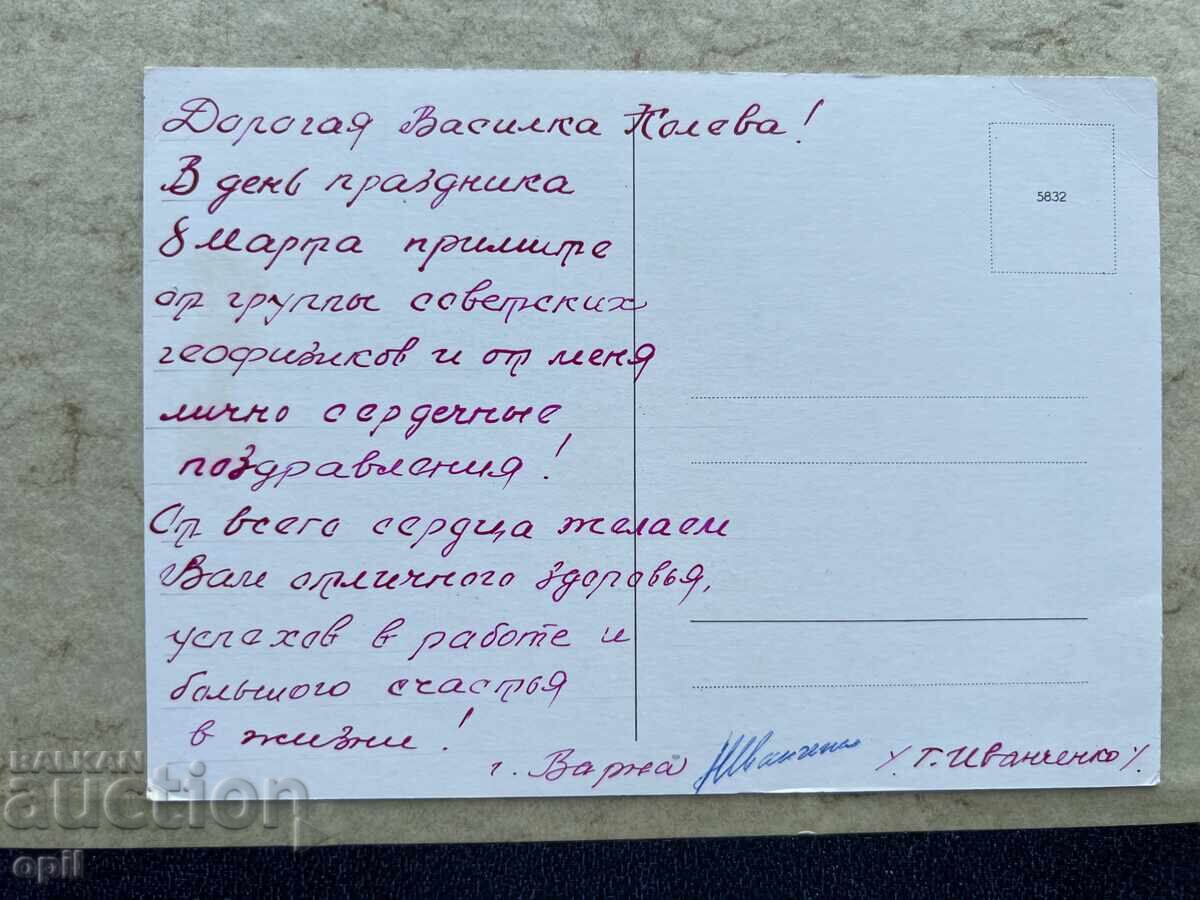 Дорогая Василка Колева!
В день праздника
8 Марта примите
от группы советских
геофизиков и от меня
лично сердечные
поздравления!
От всего сердца желаем
Вам отличного здоровья,
успехов в работе и
большого счастья
в жизни!
г. Варна
/Г. Иванченко/.
5832
BALKAN
auction
opil